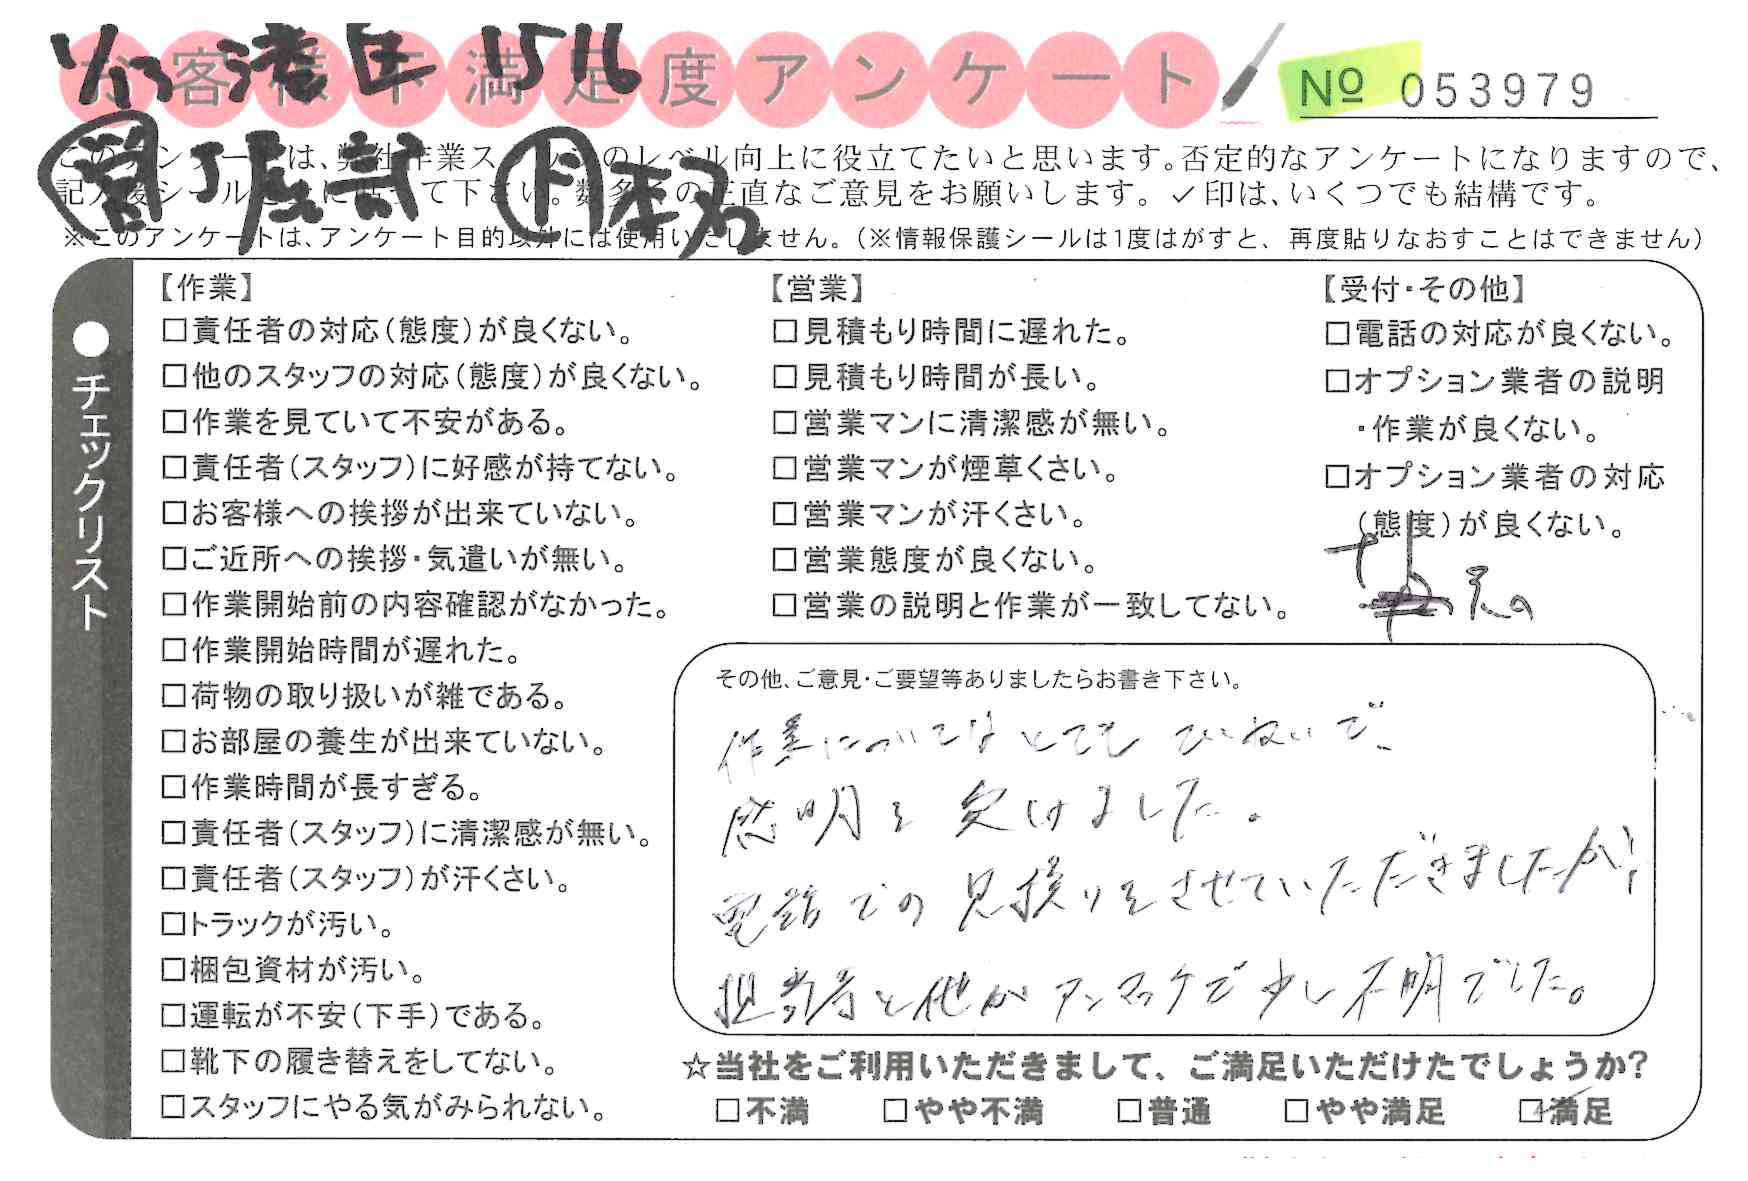 お客様不満足度アンケート
№ 053979
このアンケートは、弊社作業スタッフのレベル向上に役立てたいと思います。否定的なアンケートになりますので、
記入後シールを上に貼って下さい。数多くの正直なご意見をお願いします。✓印は、いくつでも結構です。
※このアンケートは、アンケート目的以外には使用いたしません。(※情報保護シールは1度はがすと、再度貼りなおすことはできません)
●チェックリスト
【作業】
□責任者の対応(態度)が良くない。
□他のスタッフの対応(態度)が良くない。
□作業を見ていて不安がある。
□責任者(スタッフ)に好感が持てない。
□お客様への挨拶が出来ていない。
□ご近所への挨拶・気遣いが無い。
□作業開始前の内容確認がなかった。
□作業開始時間が遅れた。
□荷物の取り扱いが雑である。
□お部屋の養生が出来ていない。
□作業時間が長すぎる。
□責任者(スタッフ)に清潔感が無い。
□責任者(スタッフ)が汗くさい。
□トラックが汚い。
□梱包資材が汚い。
□運転が不安(下手)である。
□靴下の履き替えをしてない。
□スタッフにやる気がみられない。
【営業】
□見積もり時間に遅れた。
□見積もり時間が長い。
□営業マンに清潔感が無い。
□営業マンが煙草くさい。
□営業マンが汗くさい。
□営業態度が良くない。
□営業の説明と作業が一致してない。
【受付・その他】
□電話の対応が良くない。
□オプション業者の説明
・作業が良くない。
□オプション業者の対応
(態度)が良くない。
その他、ご意見・ご要望等ありましたらお書き下さい。
作業についてはとても ていねいで、
感明を受けました。
電話での見積りをさせていただきましたが、
担当者と他がアンマッチで少し不明でした。
☆当社をご利用いただきまして、ご満足いただけたでしょうか?
□不満 □やや不満 □普通 □やや満足 ☑満足